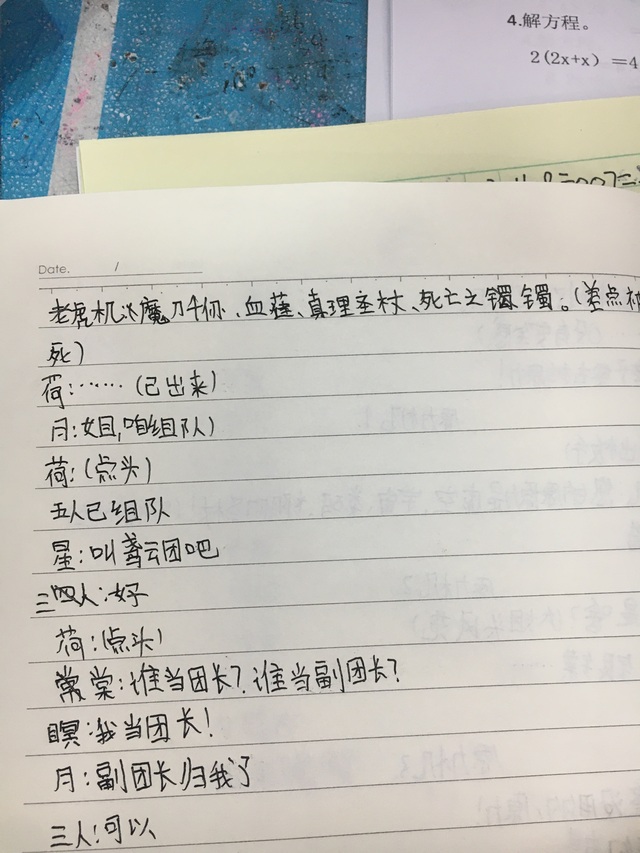 4.解方程。
2(2x+x)=4
Date. /
老虎机:魔刀千你、血莲、真理圣杖、死亡之镯镯。(差点被
死)
荷:……(已出来)
月:姐,咱组队)
荷:(点头)
五人已组队
星:叫鸢云团吧
三四人:好
荷:(点头)
棠:谁当团长?谁当副团长?
瞑:我当团长!
月:副团长归我了
三人:可以